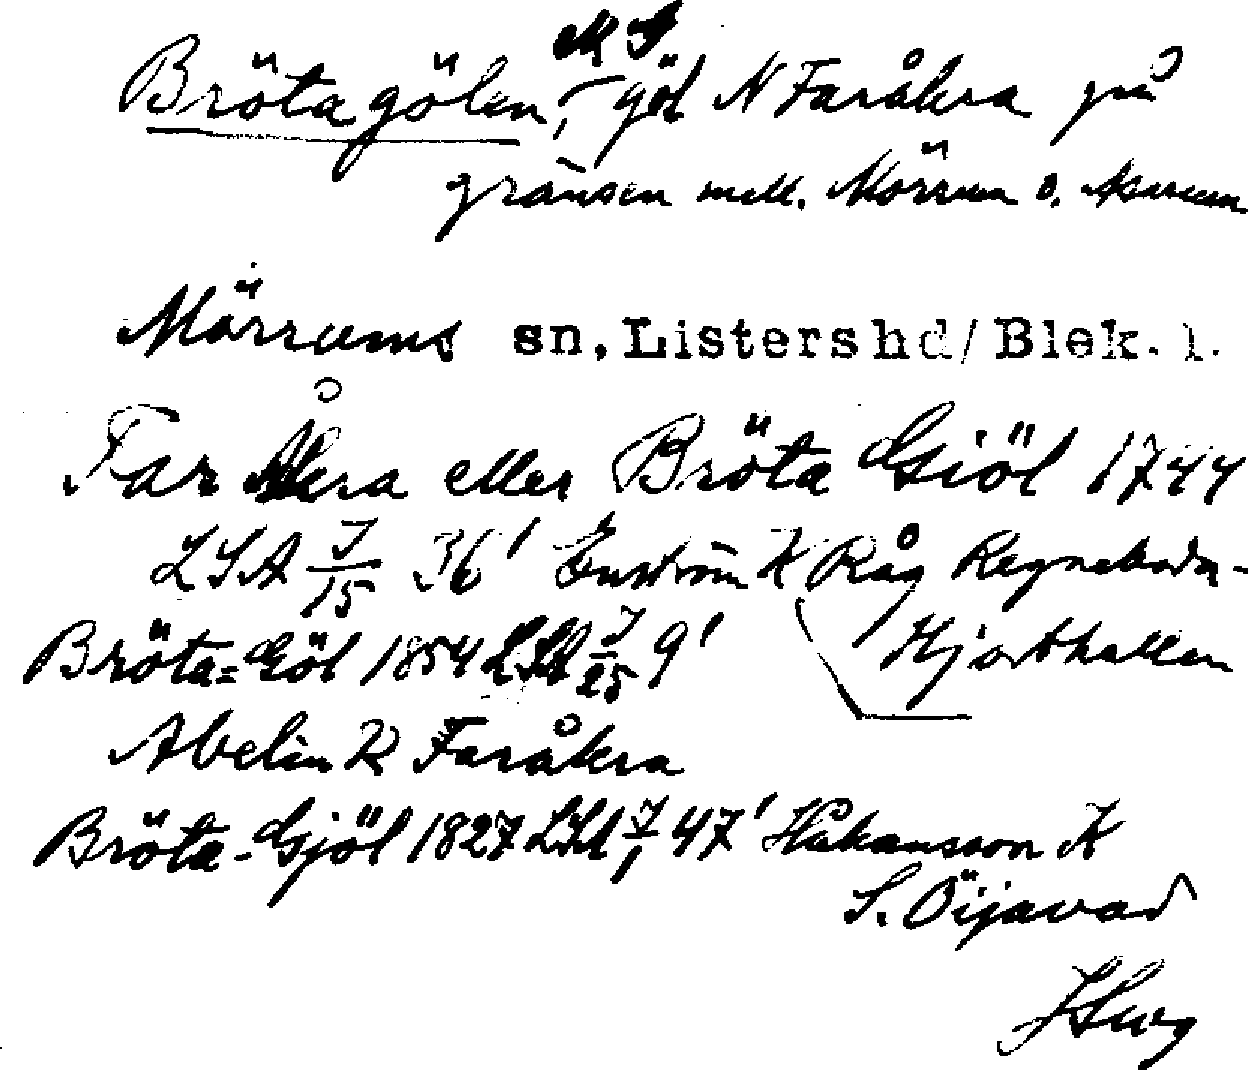 Brötagölen, göl N Faråkra på
gränsen mell. Mörrum o. Asarum
Mörrums sn, Listers hd/Blek. l.
Far Åkra eller Bröta Giöl 1744
LSA J/15 36' Enström K Råg Regneboda-
Hjorthallen
Bröta=Göl 1854 LSA J/25 9'
Abelin K Faråkra
Bröta-Gjöl 1827 LSA J/1 47' Håkansson K
S. Öijavad